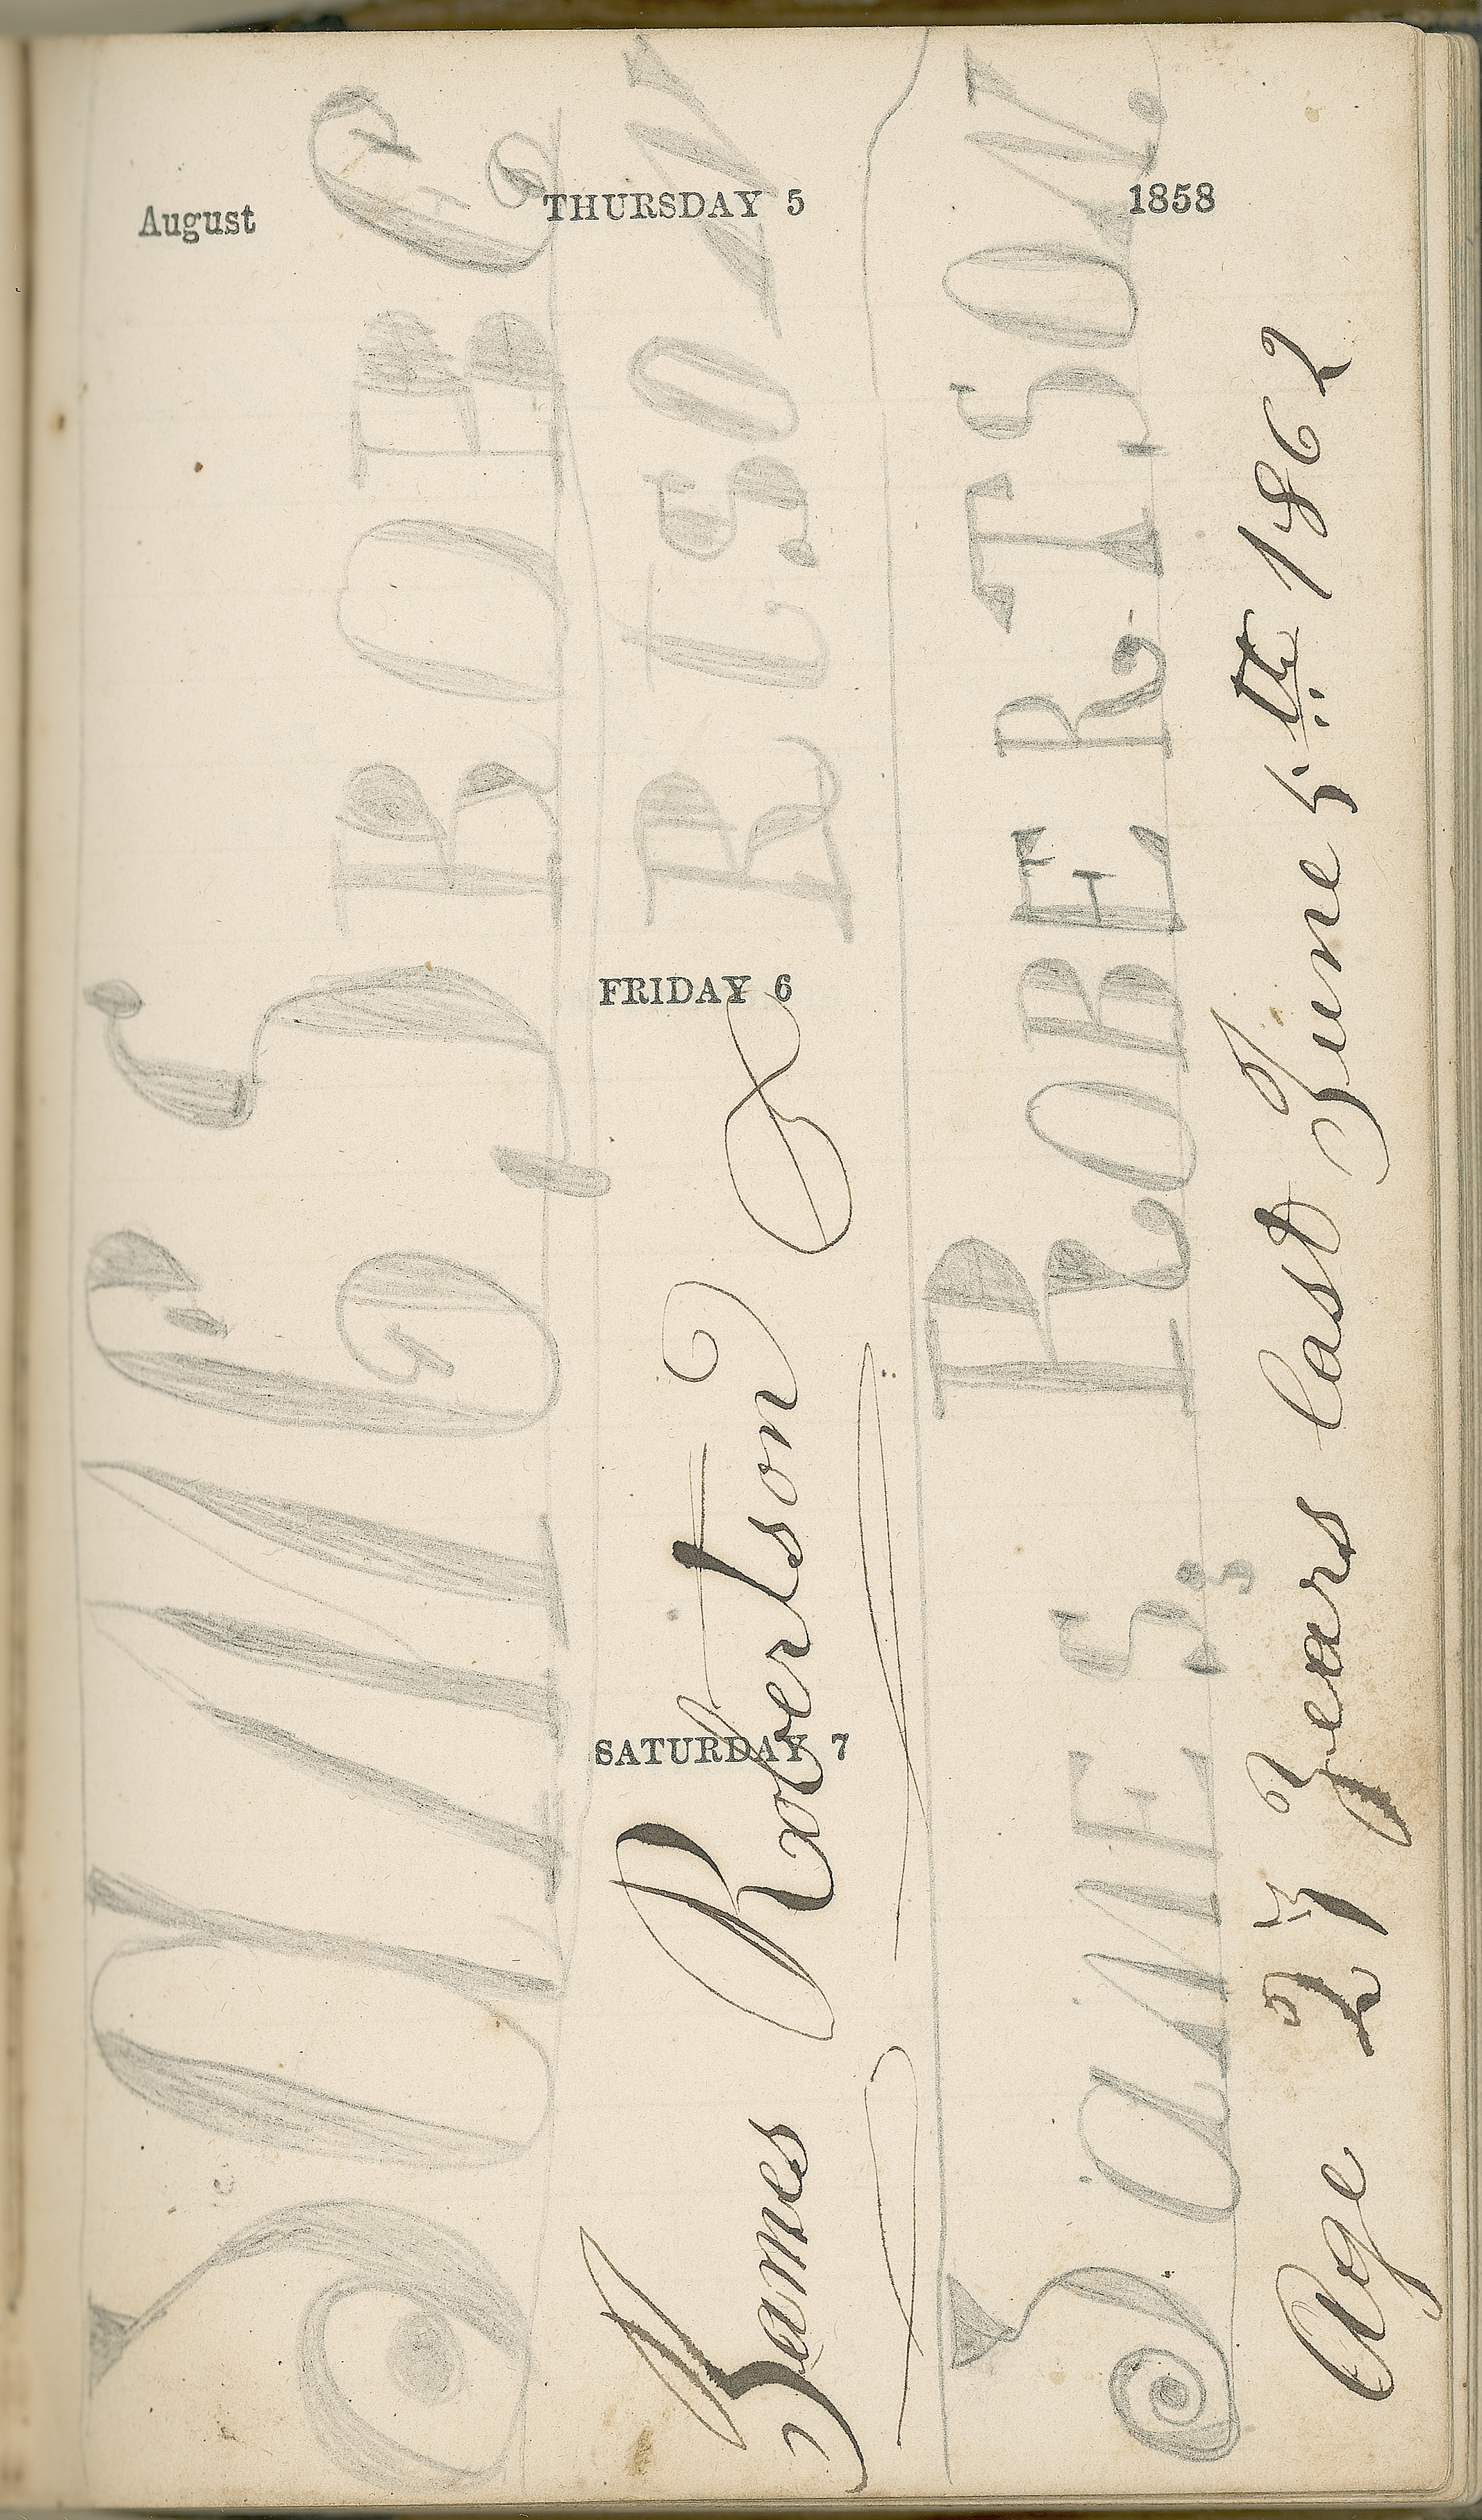 August THURSDAY 5 1858
FRIDAY 6
SATURDAY 7
JAMES ROBE
RTSON
James Robertson
JAMES, ROBERTSON.
Age 27 Years last June 5th 1862